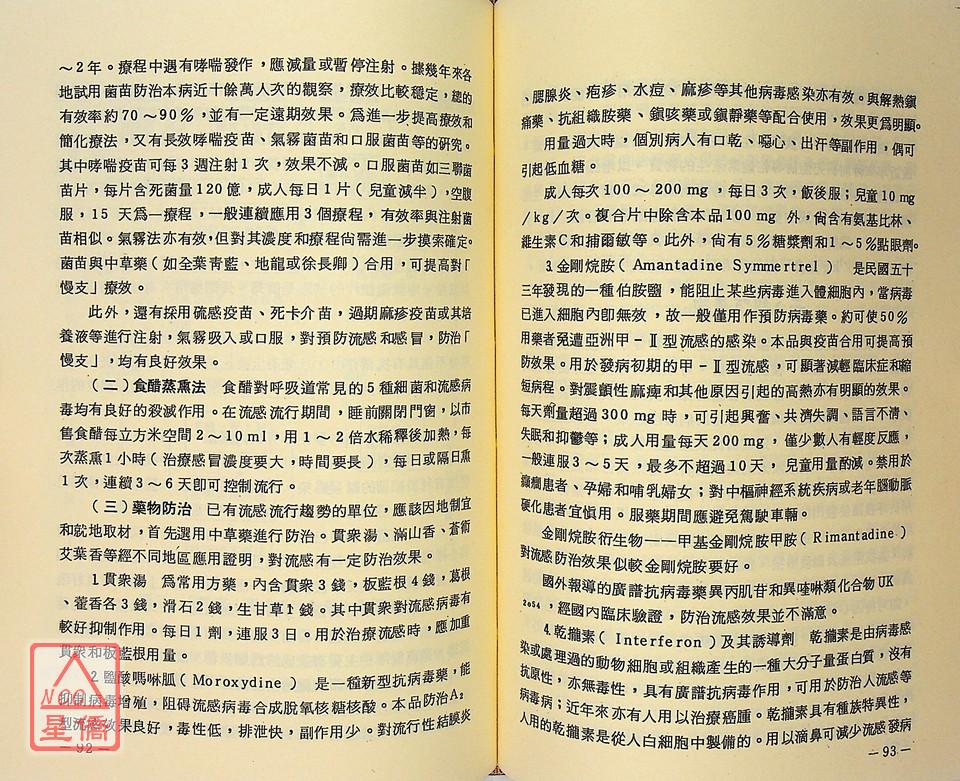 ～2年。療程中遇有哮喘發作，應減量或暫停注射。據幾年來各
地試用菌苗防治本病近十餘萬人次的觀察，療效比較穩定，總的
有效率約70～90%，並有一定遠期效果。爲進一步提高療效和
簡化療法，又有長效哮喘疫苗、氣霧菌苗和口服菌苗等的研究。
其中哮喘疫苗可每3週注射1次，效果不減。口服菌苗如三聯菌
苗片，每片含死菌量120億，成人每日1片（兒童減半），空腹
服，15天爲一療程，一般連續應用3個療程，有效率與注射菌
苗相似。氣霧法亦有效，但對其濃度和療程尙需進一步摸索確定。
菌苗與中草藥（如全葉靑藍、地龍或徐長卿）合用，可提高對「
慢支」療效。
此外，還有採用硫感疫苗、死卡介苗，過期麻疹疫苗或其培
養液等進行注射，氣霧吸入或口服，對預防流感和感冒，防治「
慢支」，均有良好效果。
（二）食醋蒸熏法　食醋對呼吸道常見的5種細菌和流感病
毒均有良好的殺滅作用。在流感流行期間，睡前關閉門窗，以市
售食醋每立方米空間2～10ml，用1～2倍水稀釋後加熱，每
次蒸熏1小時（治療感冒濃度要大，時間要長），每日或隔日熏
1次，連續3～6天卽可控制流行。
（三）藥物防治　已有流感流行趨勢的單位，應該因地制宜
和就地取材，首先選用中草藥進行防治。貫衆湯、滿山香、蒼術
艾葉香等經不同地區應用證明，對流感有一定防治效果。
1.貫衆湯　爲常用方藥，內含貫衆3錢，板藍根4錢，葛根
、藿香各3錢，滑石2錢，生甘草1錢。其中貫衆對流感病毒有
較好抑制作用。每日1劑，連服3日。用於治療流感時，應加重
貫衆和板藍根用量。
2.鹽酸嗎啉胍（Moroxydine）　是一種新型抗病毒藥，能
抑制病毒增殖，阻碍流感病毒合成脫氧核糖核酸。本品防治A₂
型流感效果良好，毒性低，排泄快，副作用少。對流行性結膜炎
—92—
NCC
星僑
、腮腺炎、疱疹、水痘、麻疹等其他病毒感染亦有效。與解熱鎭
痛藥、抗組織胺藥、鎭咳藥或鎭靜藥等配合使用，效果更爲明顯。
用量過大時，個別病人有口乾、噁心、出汗等副作用，偶可
引起低血糖。
成人每次100～200mg，每日3次，飯後服；兒童10mg
/kg/次。複合片中除含本品100mg外，尙含有氨基比林、
維生素C和捕爾敏等。此外，尙有5%糖漿劑和1～5%點眼劑。
3.金剛烷胺（Amantadine Symmertrel）　是民國五十
三年發現的一種伯胺鹽，能阻止某些病毒進入體細胞內，當病毒
已進入細胞內卽無效，故一般僅用作預防病毒藥。約可使50%
用藥者免遭亞洲甲－Ⅱ型流感的感染。本品與疫苗合用可提高預
防效果。用於發病初期的甲－Ⅱ型流感，可顯著減輕臨床症和縮
短病程。對震顫性麻痺和其他原因引起的高熱亦有明顯的效果。
每天劑量超過300mg時，可引起興奮、共濟失調、語言不清、
失眠和抑鬱等；成人用量每天200mg，僅少數人有輕度反應，
一般連服3～5天，最多不超過10天，兒童用量酌減。禁用於
癲癇患者、孕婦和哺乳婦女；對中樞神經系統疾病或老年腦動脈
硬化患者宜愼用。服藥期間應避免駕駛車輛。
金剛烷胺衍生物——甲基金剛烷胺甲胺（Rimantadine）
對流感防治效果似較金剛烷胺要好。
國外報導的廣譜抗病毒藥異丙肌苷和異喹啉類化合物UK
2054，經國內臨床驗證，防治流感效果並不滿意。
4.乾擾素（Interferon）及其誘導劑　乾擾素是由病毒感
染或處理過的動物細胞或組織產生的一種大分子量蛋白質，沒有
抗原性，亦無毒性，具有廣譜抗病毒作用，可用於防治人流感等
病毒病；近年來亦有人用以治療癌腫。乾擾素具有種族特異性，
人用的乾擾素是從人白細胞中製備的。用以滴鼻可減少流感發病
—93—